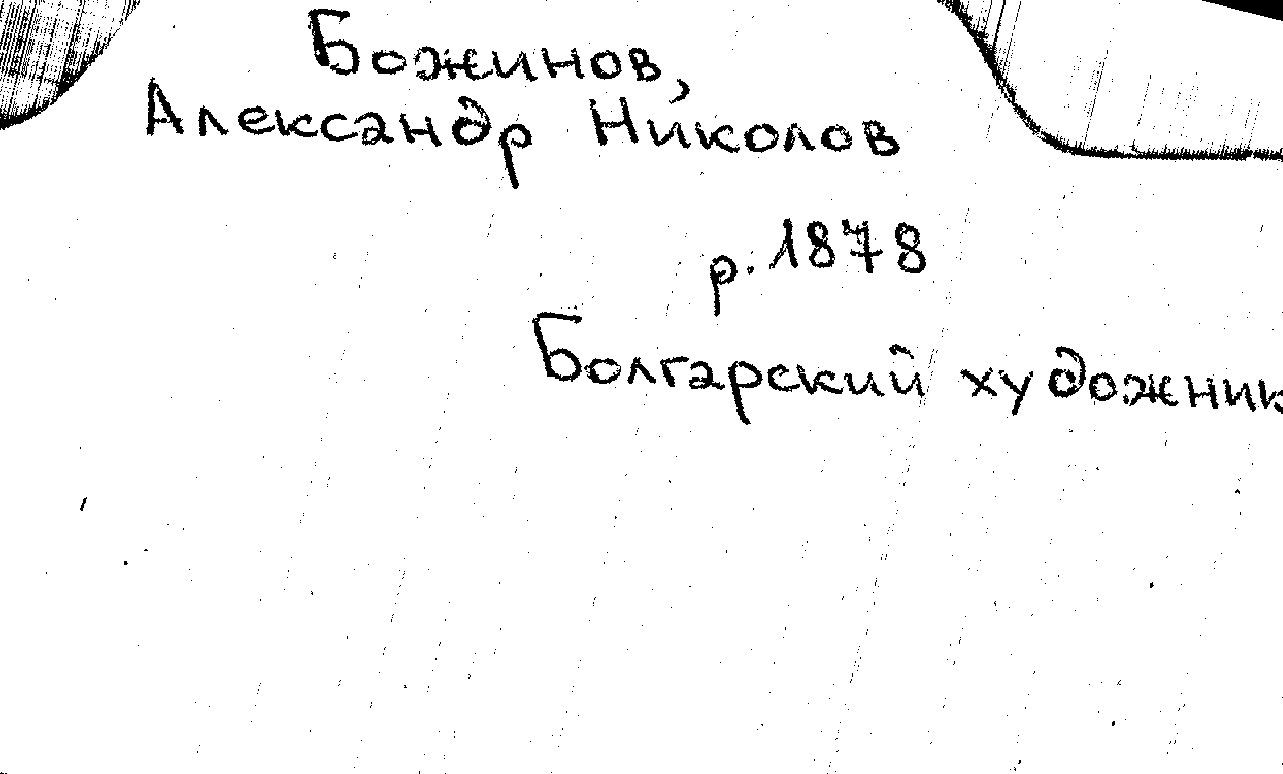 Божинов,
Александр Николов
р. 1878
Болгарский художник